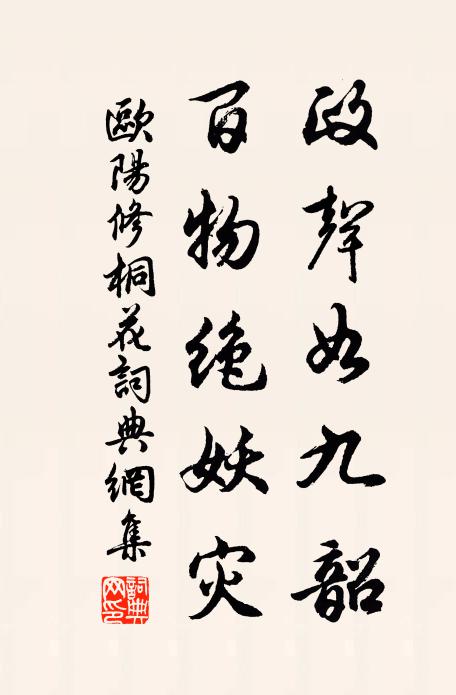 政聲如九韶
百物絶妖灾
歐陽修桐花詞典網集
詞典网印